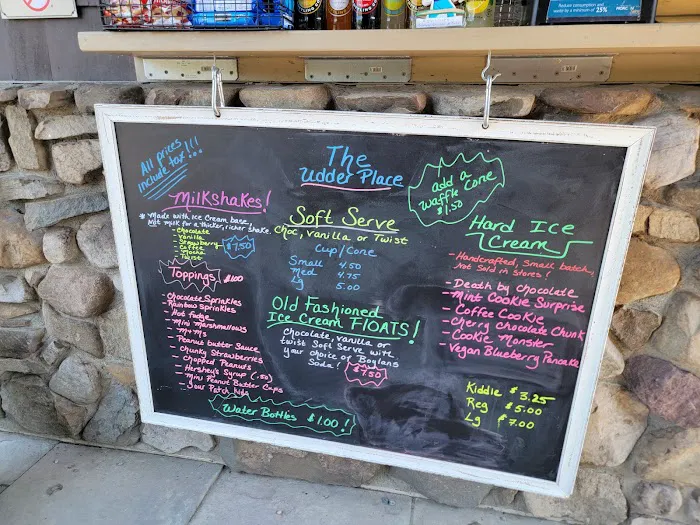 All prices
include tax!!!
The
Udder Place
add a
Waffle Cone
$1.50
Milkshakes!
* Made with Ice Cream base,
Not milk for a thicker, richer shake
- Chocolate
- Vanilla
- Strawberry
- Coffee
- Mocha
- Twist
$7.50
Toppings
$1.00
- Chocolate Sprinkles
- Rainbow Sprinkles
- Hot fudge
- Mini Marshmallows
- M+Ms
- Peanut butter Sauce
- Chunky Strawberries
- Chopped Peanuts
- Hershey's Syrup (.50)
- Mini Peanut Butter Cups
- Sour Patch kids
Water Bottles $1.00!
Soft Serve
Choc, Vanilla or Twist
Cup/Cone
Small 4.50
Med 4.75
Lg 5.00
Old Fashioned
Ice Cream FLOATS!
Chocolate, Vanilla or
twist Soft Serve with
your choice of Boylans
Soda!
$7.50
Hard Ice
Cream
- Handcrafted, Small batch,
Not Sold in Stores!
- Death by Chocolate
- Mint Cookie Surprise
- Coffee Cookie
- Cherry Chocolate Chunk
- Cookie Monster
- Vegan Blueberry Pancake
Kiddie $3.25
Reg $5.00
Lg $7.00